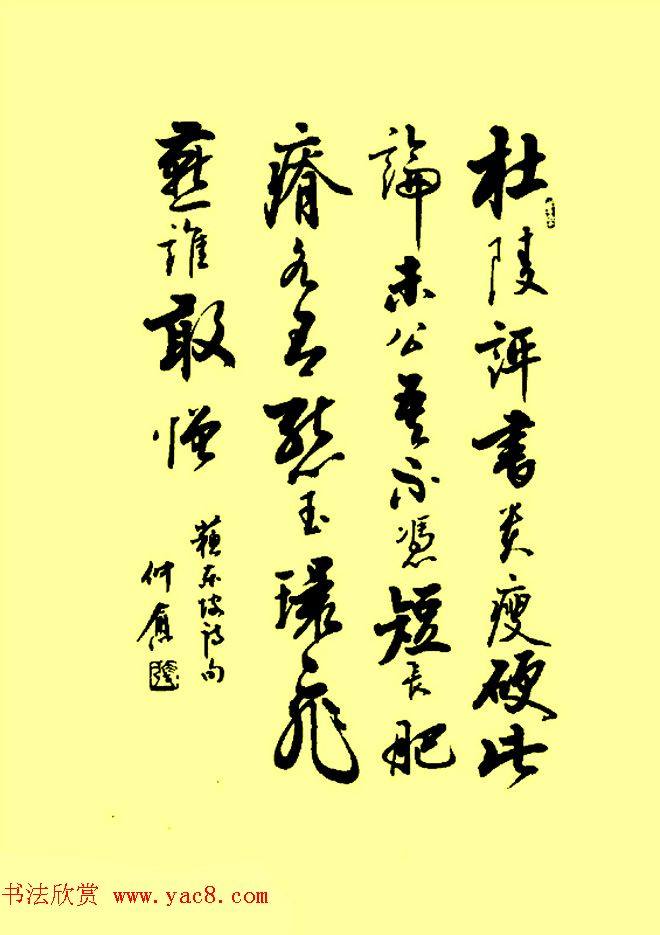 杜陵評書貴瘦硬此
論未公吾不憑短長肥
瘠各有態玉環飛
燕誰敢憎
蘇東坡詩句
仲
书法欣赏 www.yac8.com